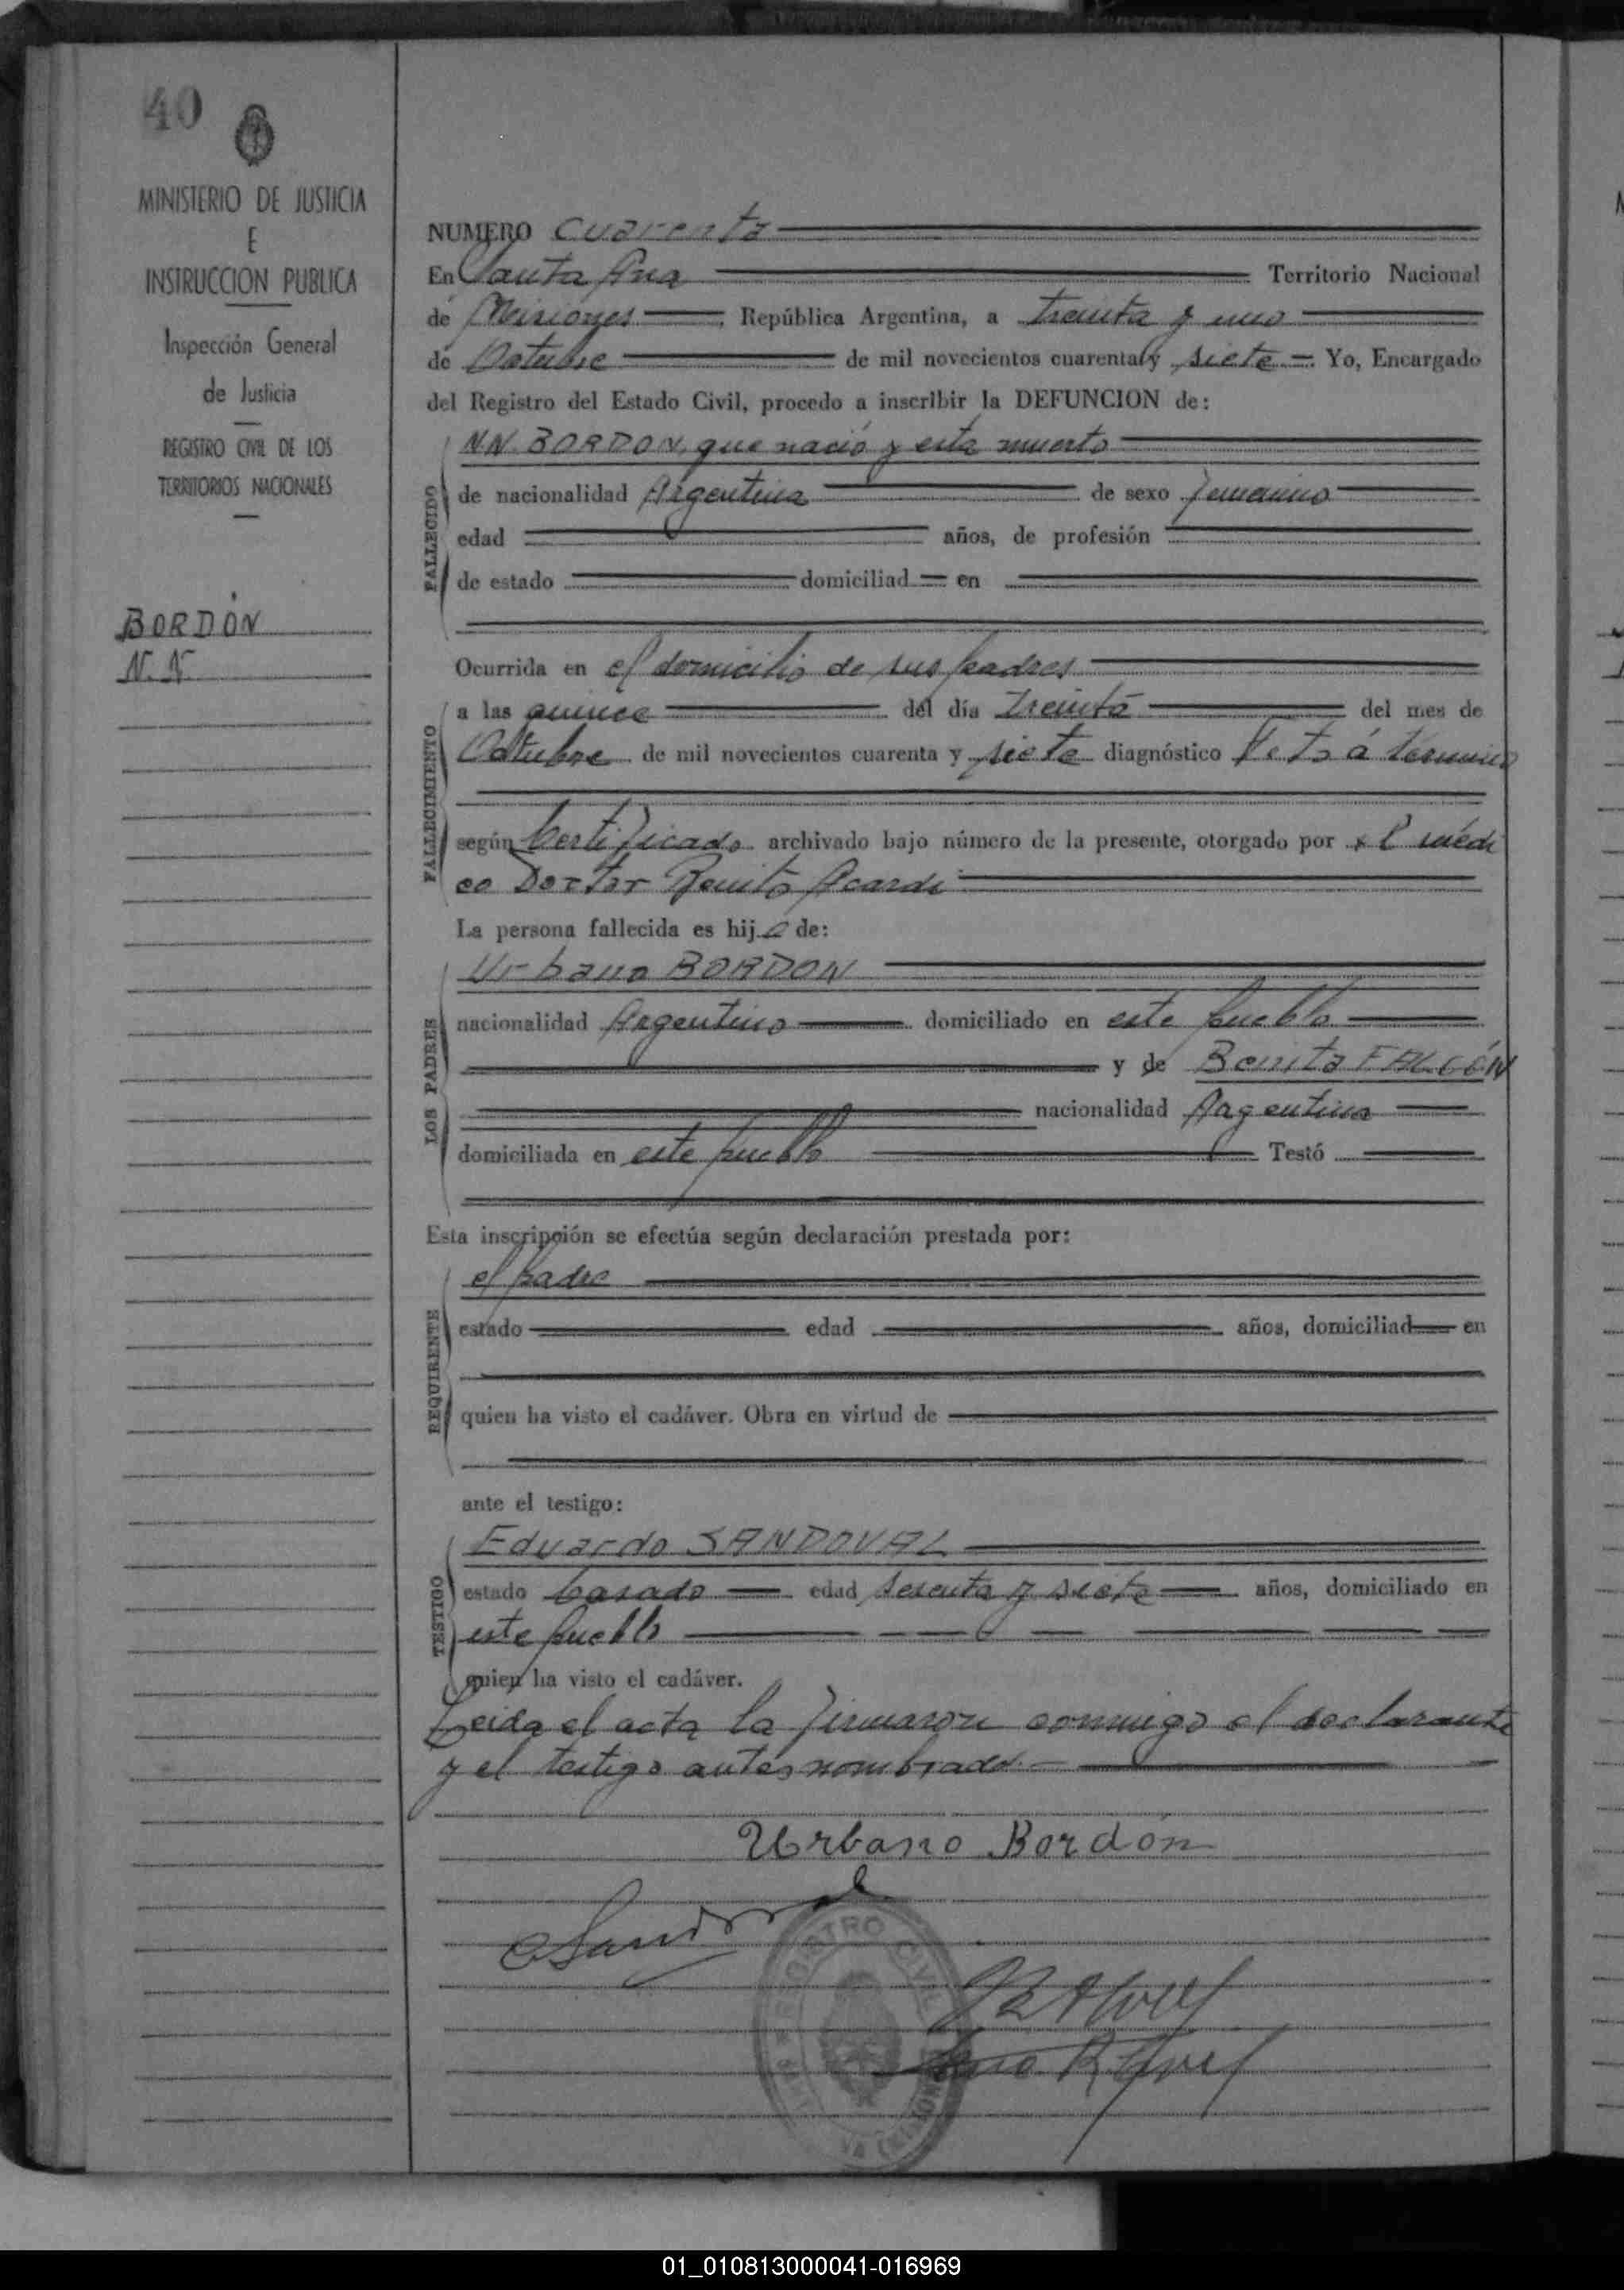 40
MINISTERIO DE JUSTICIA
E
INSTRUCCION PUBLICA
Inspección General
de Justicia
REGISTRO CIVIL DE LOS
TERRITORIOS NACIONALES
BORDÓN
N. N.
NUMERO Cuarenta
En Santa Ana Territorio Nacional
de Misiones República Argentina, a treinta y uno
de Octubre de mil novecientos cuarenta y siete Yo, Encargado
del Registro del Estado Civil, procedo a inscribir la DEFUNCION de:
N.N. BORDON, que nació y está muerto
FALLECIDO
de nacionalidad Argentina de sexo femenino
edad años, de profesión
de estado domiciliad en
Ocurrida en el domicilio de sus padres
FALLECIMIENTO
a las quince del día treinta del mes de
Octubre de mil novecientos cuarenta y siete diagnóstico á término
según Certificado archivado bajo número de la presente, otorgado por el médi
co Doctor Benito Acardi
La persona fallecida es hija de:
LOS PADRES
Urbano BORDON
nacionalidad Argentino domiciliado en este pueblo
y de Benita FALCÓN
nacionalidad Argentina
domiciliada en este pueblo Testó
Esta inscripción se efectúa según declaración prestada por:
REQUIRENTE
el padre
estado edad años, domiciliad en
quien ha visto el cadáver. Obra en virtud de
ante el testigo:
TESTIGO
Eduardo SANDOVAL
estado casado edad sesenta y siete años, domiciliado en
este pueblo
quien ha visto el cadáver.
Leida el acta la firmaron conmigo el declarante
y el testigo antes nombrado.
Urbano Bordón
ESandoval
REGISTRO CIVIL
01_010813000041-016969